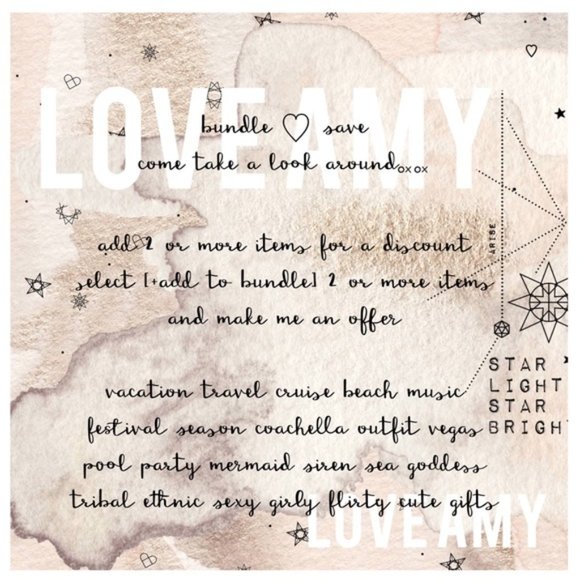 LOVE AMY
bundle ♡ save
come take a look around oxox
ARISE
add 2 or more items for a discount
select [+add to bundle] 2 or more items
and make me an offer
STAR
LIGHT
STAR
BRIGHT
vacation travel cruise beach music
festival season coachella outfit vegas
pool party mermaid siren sea goddess
tribal ethnic sexy girly flirty cute gifts
LOVE AMY